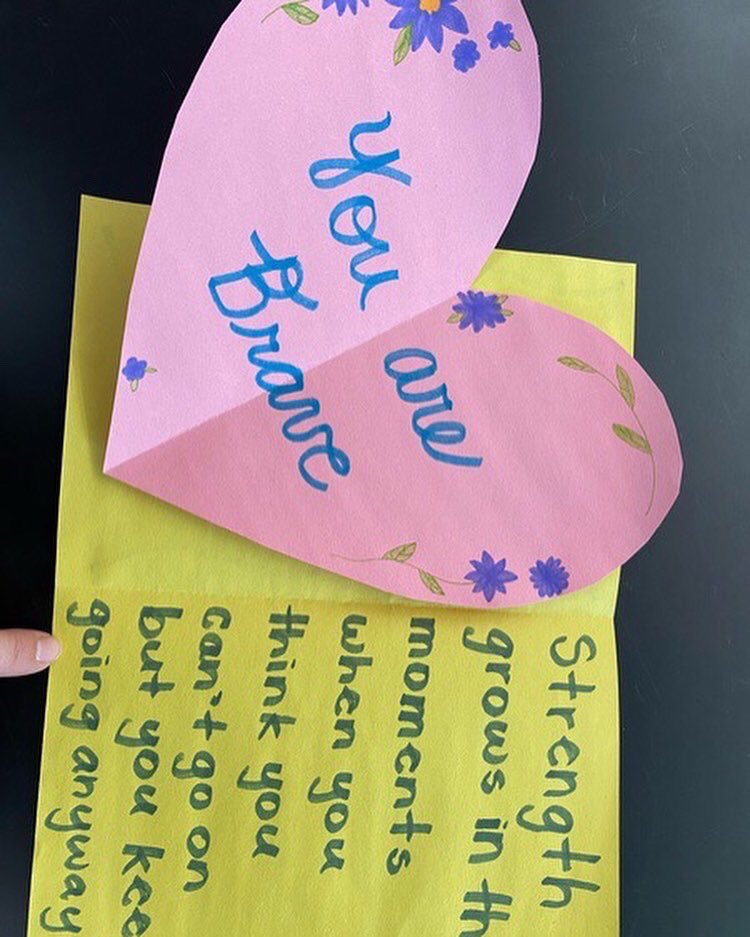 You are
Brave
Strength
grows in th
moments
when you
think you
can't go on
but you kee
going anyway